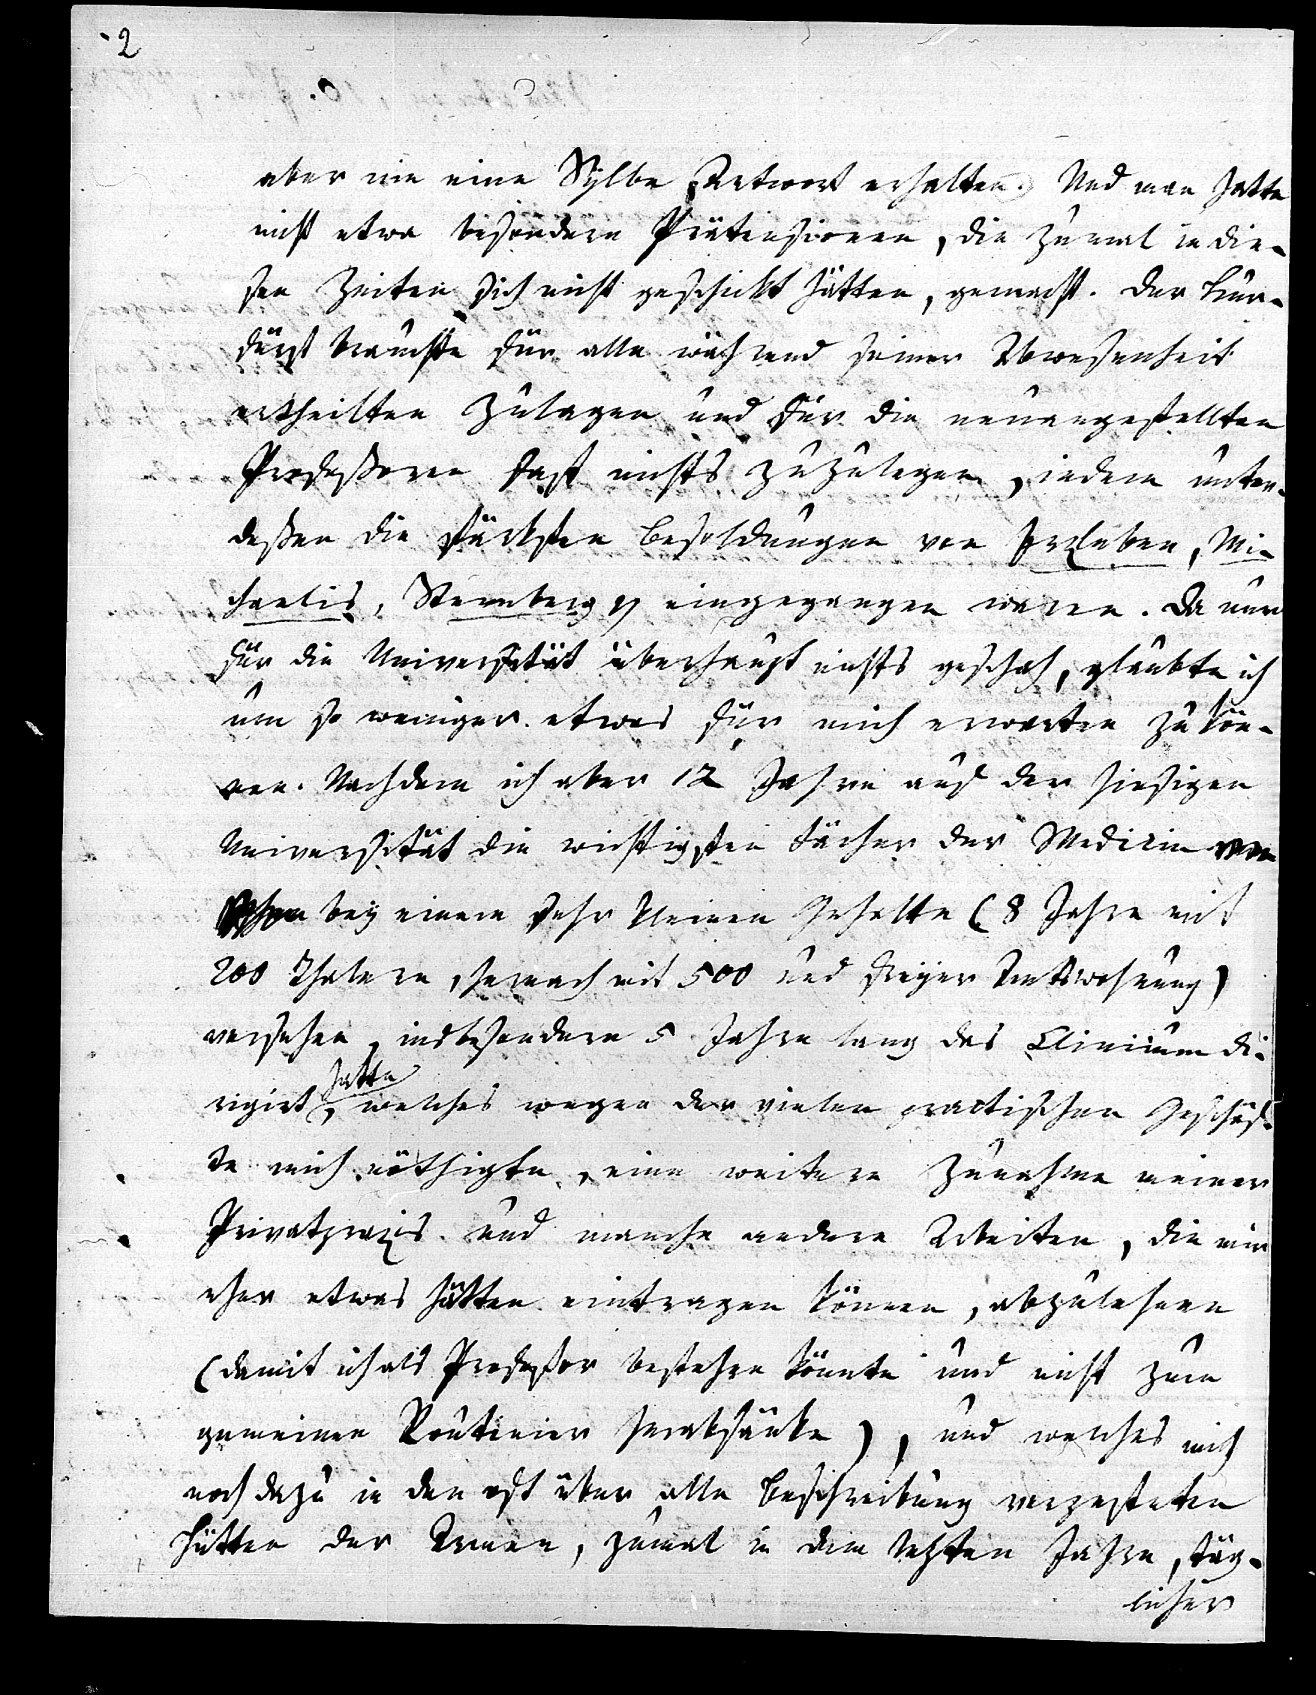 2
aber nie eine Sylbe Antwort erhalten. Und man hatte
nicht etwa besondere Prätensionen, die zumal in die-
sen Zeiten sich nicht geschickt hätten, gemacht. Der Kur-
fürst brauchte für alle während seiner Abwesenheit
ertheilten Zulagen und für die neuangestellten
Professoren fast nichts zuzulegen, indem unter-
deßen die stärksten Besoldungen von Erxleben, Mi-
chaelis, Sternberg eingegangen waren. Da nun
für die Universität überhaupt nichts geschah, glaubte ich
um so weniger etwas für mich erwarten zu kön-
nen. Nachdem ich aber 12 Jahre auf der hiesigen
Universität die wichtigsten Fächer der Medicin
bey einem sehr kleinen Gehalte (8 Jahre mit
200 Thalern, hernach mit 500 und freyer Amtswohnung)
versehen, insbesondere 5 Jahre lang das Clinicum di-
hatte
rigirt, welches wegen der vielen practischen Geschäf-
te mich nöthigte, eine weitere Zunahme meiner
Privatpraxis und manche andere Arbeiten, die mir
eher etwas hätten eintragen können, abzulehnen
(damit ich als Professor bestehen könnte und nicht zum
gemeinen Routinier herabsänke), und welches mich
noch dazu in den oft über alle Beschreibung verpesteten
Hütten der Armen, zumal in dem letzten Jahre, täg-
licher